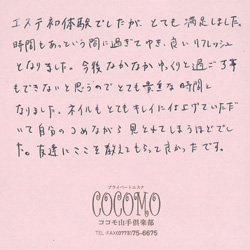 エステ初体験でしたが、とても満足しました。
時間もあっという間に過ぎてゆき、良いリフレッシュ
となりました。今後なかなかゆっくりと過ごす事
もできないと思うのでとても貴重な時間に
なりました。ネイルもとてもキレイに仕上げていただ
いて自分のつめながら見とれてしまうほどでし
た。友達にここを教えてもらって良かったです。
プライベートエステ
COCOMO
ココモ山手倶楽部
TEL・FAX(0773)75-6675